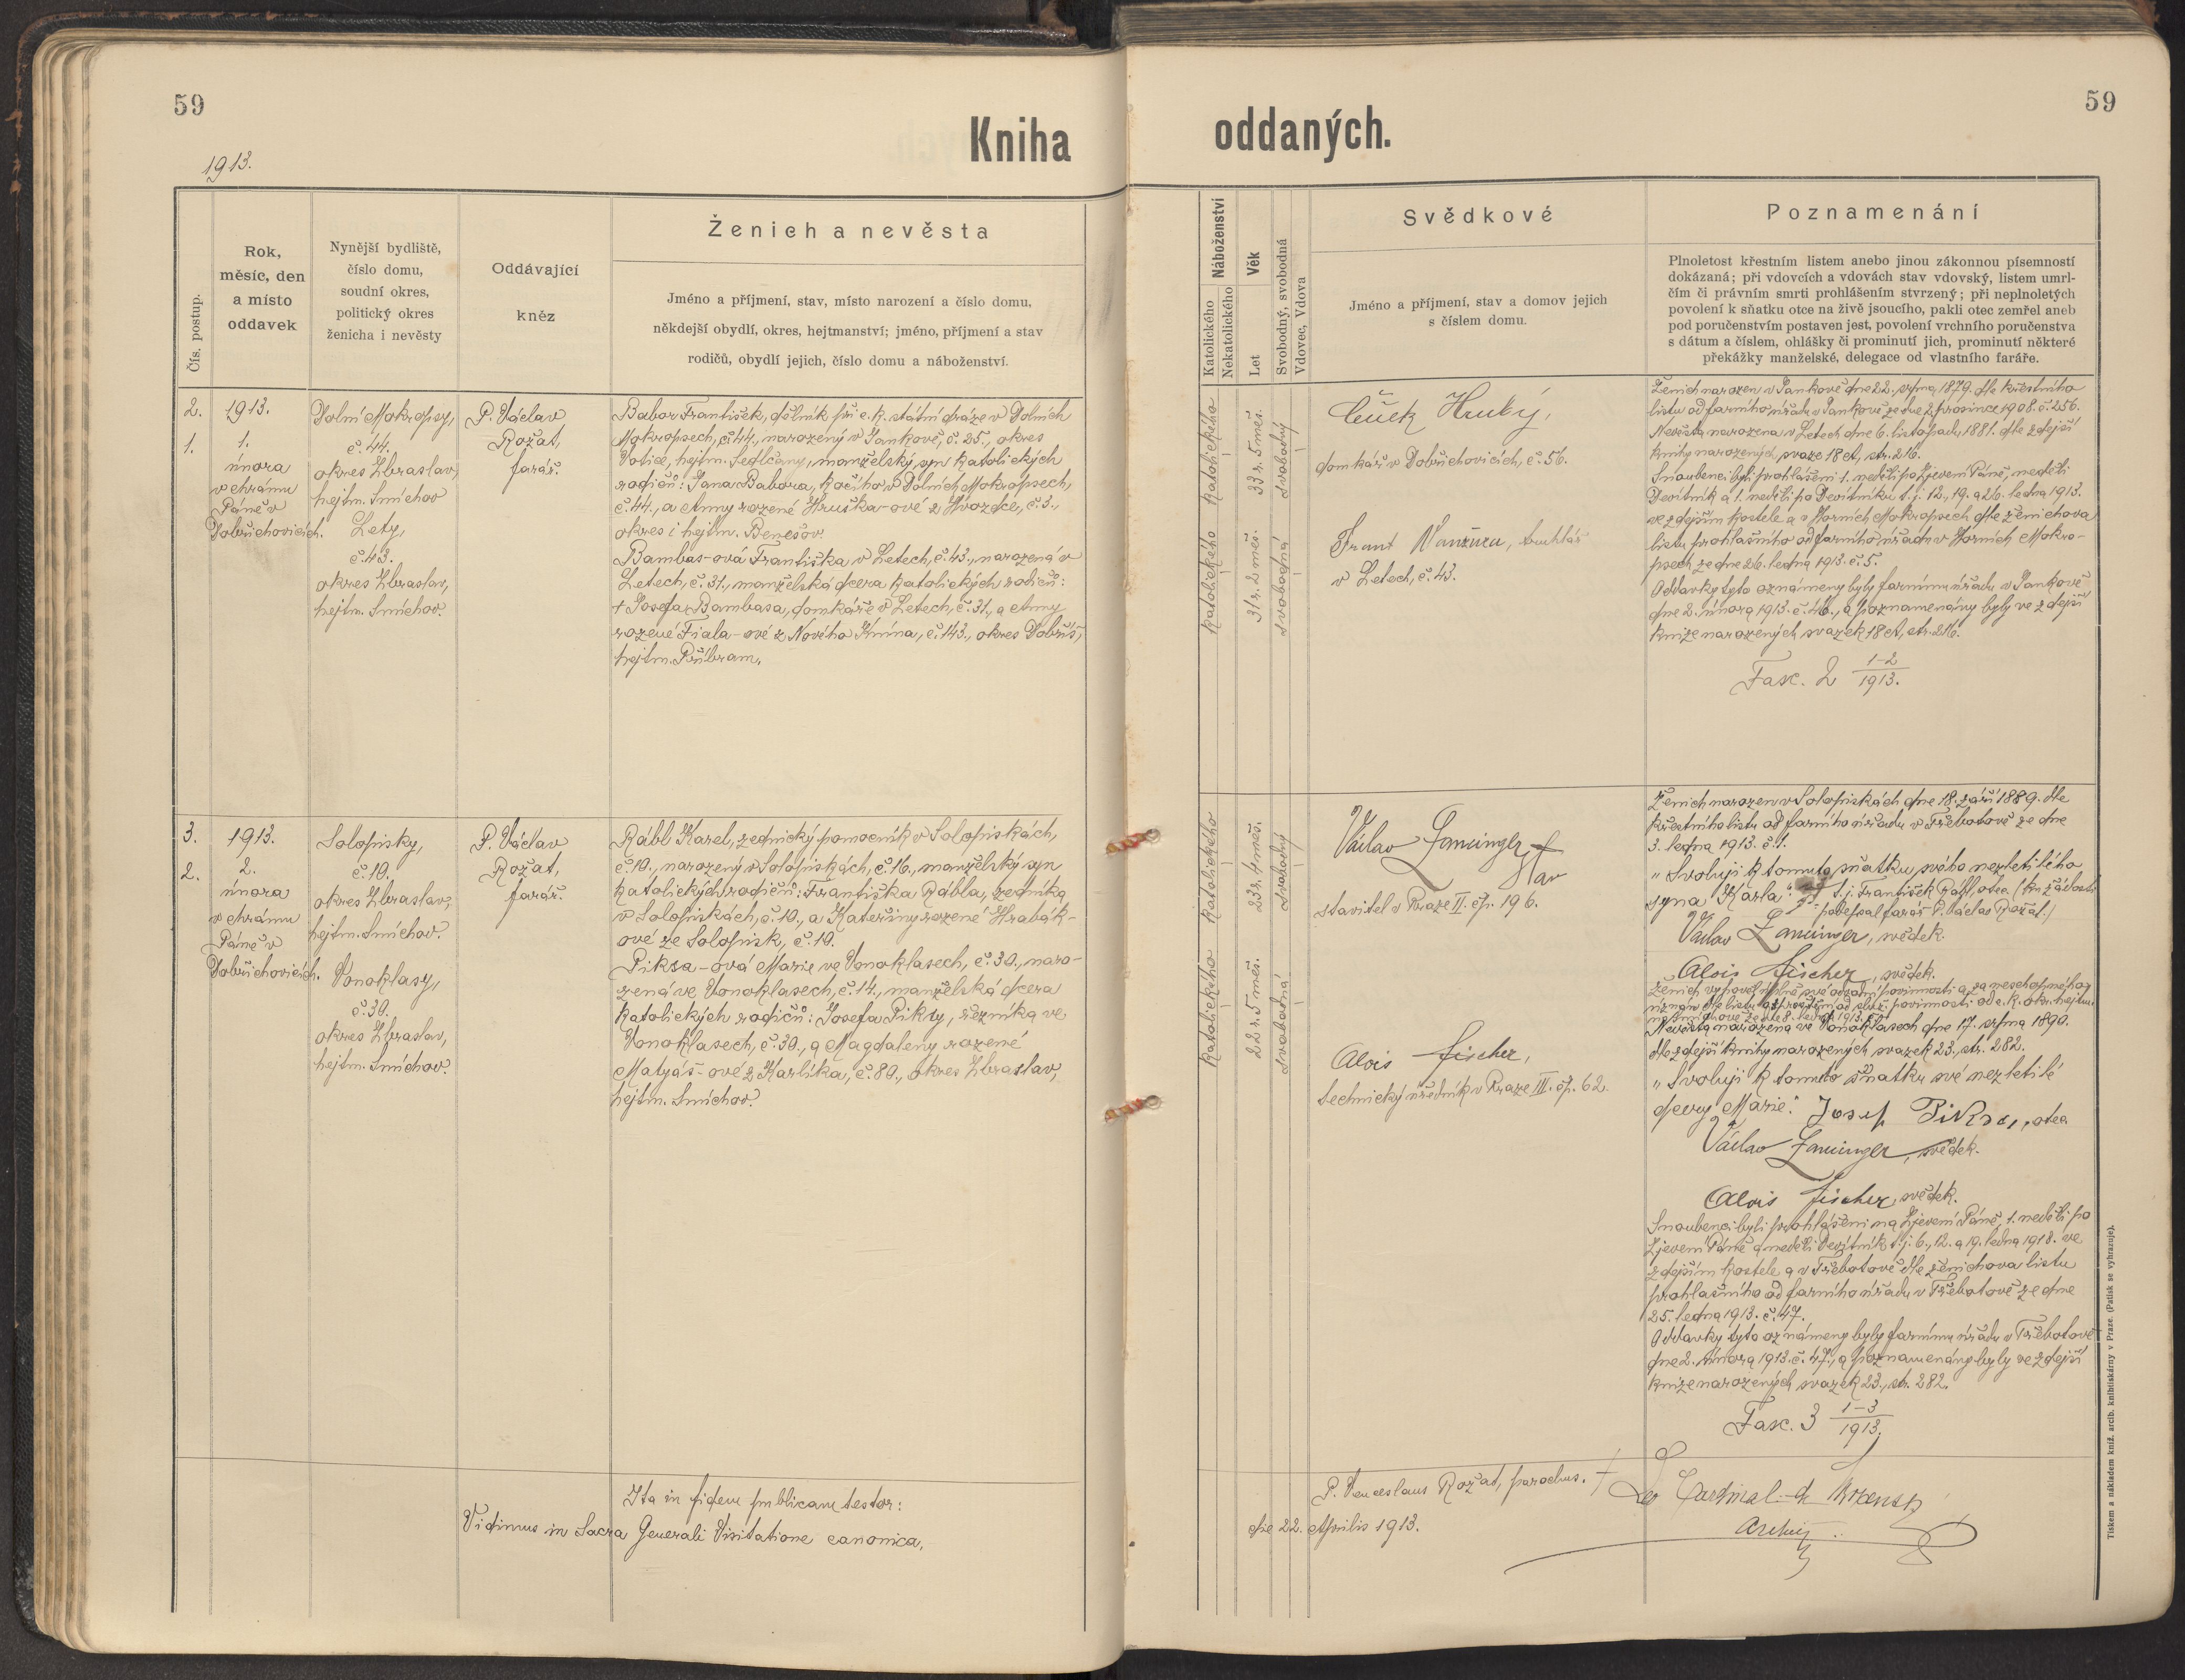 59
59
Kniha oddaných.
1913.
Čís. postup.
Rok,
měsíc, den
a místo
oddavek
Nynější bydliště,
číslo domu,
soudní okres,
politický okres
ženicha i nevěsty
Oddávající
kněz
Ženich a nevěsta
Jméno a příjmení, stav, místo narození a číslo domu,
někdejší obydlí, okres, hejtmanství; jméno, příjmení a stav
rodičů, obydlí jejich, číslo domu a náboženství.
Náboženství
Katolického
Nekatolického
Věk
Let
Svobodný, svobodná
Vdovec, Vdova
Svědkové
Jméno a příjmení, stav a domov jejich
s číslem domu.
Poznamenání
Plnoletost křestním listem anebo jinou zákonnou písemností
dokázaná; při vdovcích a vdovách stav vdovský, listem umrl-
čím či právním smrti prohlášením stvrzený; při neplnoletých
povolení k sňatku otce na živě jsoucího, pakli otec zemřel aneb
pod poručenstvím postaven jest, povolení vrchního poručenstva
s dátum a číslem, ohlášky či prominutí jich, prominutí některé
překážky manželské, delegace od vlastního faráře.
2.
1.
1913.
1.
února
v chrámu
Páně v
Dobřichovicích.
Dolní Mokropsy,
č. 44.
okres Zbraslav,
hejtm. Smíchov
Lety,
č. 43.
okres Zbraslav,
hejtm. Smíchov.
P. Václav
Rožat,
farář.
Babor František, dělník při c. k. státní dráze v Dolních
Mokropsech, č. 44., narozený v Jankově, č. 25., okres
Votice, hejtm. Sedlčany, manželský syn katolických
rodičů: Jana Babora, kočího v Dolních Mokropsech,
č. 44., a Anny rozené Hruška-ové z Hvozdce, č. 3.,
okres i hejtm. Benešov.
Bambas-ová Františka v Letech, č. 43., narozená v
Letech, č. 31., manželská dcera katolických rodičů:
† Josefa Bambasa, domkáře v Letech, č. 31., a Anny
rozené Fiala-ové z Nového Knína, č. 143., okres Dobříš,
hejtm. Příbram.
Katolického
Katolického
33 r. 5 měs.
31 r. 2 měs.
svobodný
svobodná
Čeněk Hrubý,
domkář v Dobřichovicích, č. 56.
Frant , truhlář
v Letech, č. 43.
Ženich narozen v Jankově dne 22. srpna 1879. dle křestního
listu od farního úřadu v Jankově ze dne 2. prosince 1908. č. 256.
Nevěsta narozena v Letech dne 6. listopadu 1881. dle zdejší
knihy narozených svaz. 18 ct, str. 216.
Snoubenci byli prohlášeni 1. neděli po Zjevení Páně, neděli
Devítník a 1. neděli po Devítníku t. j. 12., 19. a 26. ledna 1913.
ve zdejším kostele a v Horních Mokropsech dle ženichova
listu prohlašního od farního úřadu v Horních Mokro-
psech ze dne 26. ledna 1913. č. 5.
Oddavky tyto oznámeny byly farnímu úřadu v Jankově
dne 2. února 1913. č. 46., a poznamenány byly ve zdejší
knize narozených svazek 18 ct, str. 216.
Fasc. 2 1-2
1913.
3.
2.
1913.
2.
února
v chrámu
Páně v
Dobřichovicích.
Solopisky,
č. 10.
okres Zbraslav,
hejtm. Smíchov.
Vonoklasy,
č. 30.
okres Zbraslav,
hejtm. Smíchov.
P. Václav
Rožat,
farář.
Rábl Karel, zednický pomocník v Solopiskách,
č. 10., narozený v Solopiskách, č. 16., manželský syn
katolických rodičů: Františka Rábla, zedníka
v Solopiskách, č. 10., a Kateřiny rozené Hrabák-
ové ze Solopisk, č. 10.
Piksa-ová Marie ve Vonoklasech, č. 30., naro-
zená ve Vonoklasech, č. 14., manželská dcera
katolických rodičů: Josefa Piksy, řezníka ve
Vonoklasech, č. 30., a Magdaleny rozené
Matyáš-ové z Karlíka, č. 80., okres Zbraslav,
hejtm. Smíchov.
Katolického
Katolického
23 r. 4 měs.
22 r. 5 měs.
svobodný
svobodná
Václav
stavitel v Praze II. čp. 196.
Alois Fischer,
technický úředník v Praze III. čp. 62.
Ženich narozen v Solopiskách dne 18. září 1889. dle
křestního listu od farního úřadu v Třebotově ze dne
3. ledna 1913. č. 1.
„Svoluji k tomuto sňatku svého nezletilého
syna Karla“ t. j. František Rábl, otec. (ku žádosti
podepsal farář P. Václav Rožat.)
Václav , svědek.
Alois Fischer, svědek.
Ženich vypověl úplně své odvodní povinnosti a za neschopného
uznán dle listu od c. k. okr. hejtm.
na Smíchově ze dne 8. ledna 1913.
Nevěsta narozena ve Vonoklasech dne 17. srpna 1890.
dle zdejší knihy narozených svazek 23., str. 282.
„Svoluji k tomuto sňatku své nezletilé
dcery Marie.“ Josef Piksa, otec.
Václav , svědek.
Alois Fischer, svědek.
Snoubenci byli prohlášeni na Zjevení Páně, 1. neděli po
Zjevení Páně a neděli Devítník t. j. 6., 12. a 19. ledna 1913. ve
zdejším kostele a v Třebotově dle ženichova listu
prohlašního od farního úřadu v Třebotově ze dne
25. ledna 1913. č. 47.
Oddavky tyto oznámeny byly farnímu úřadu v Třebotově
dne 2. února 1913. č. 47., a poznamenány byly ve zdejší
knize narozených svazek 23., str. 282.
Fasc. 3 1-3
1913.
Ita in fidem publicam testor: P. Venceslaus Rožat, parochus.
Vidimus in Sacra Generali Visitatione canonica, die 22. Aprilis 1913.
Leo Cardinal de Skrbensky
Tiskem a nákladem kníž. arcib. knihtiskárny v Praze. (Patisk se vyhrazuje).